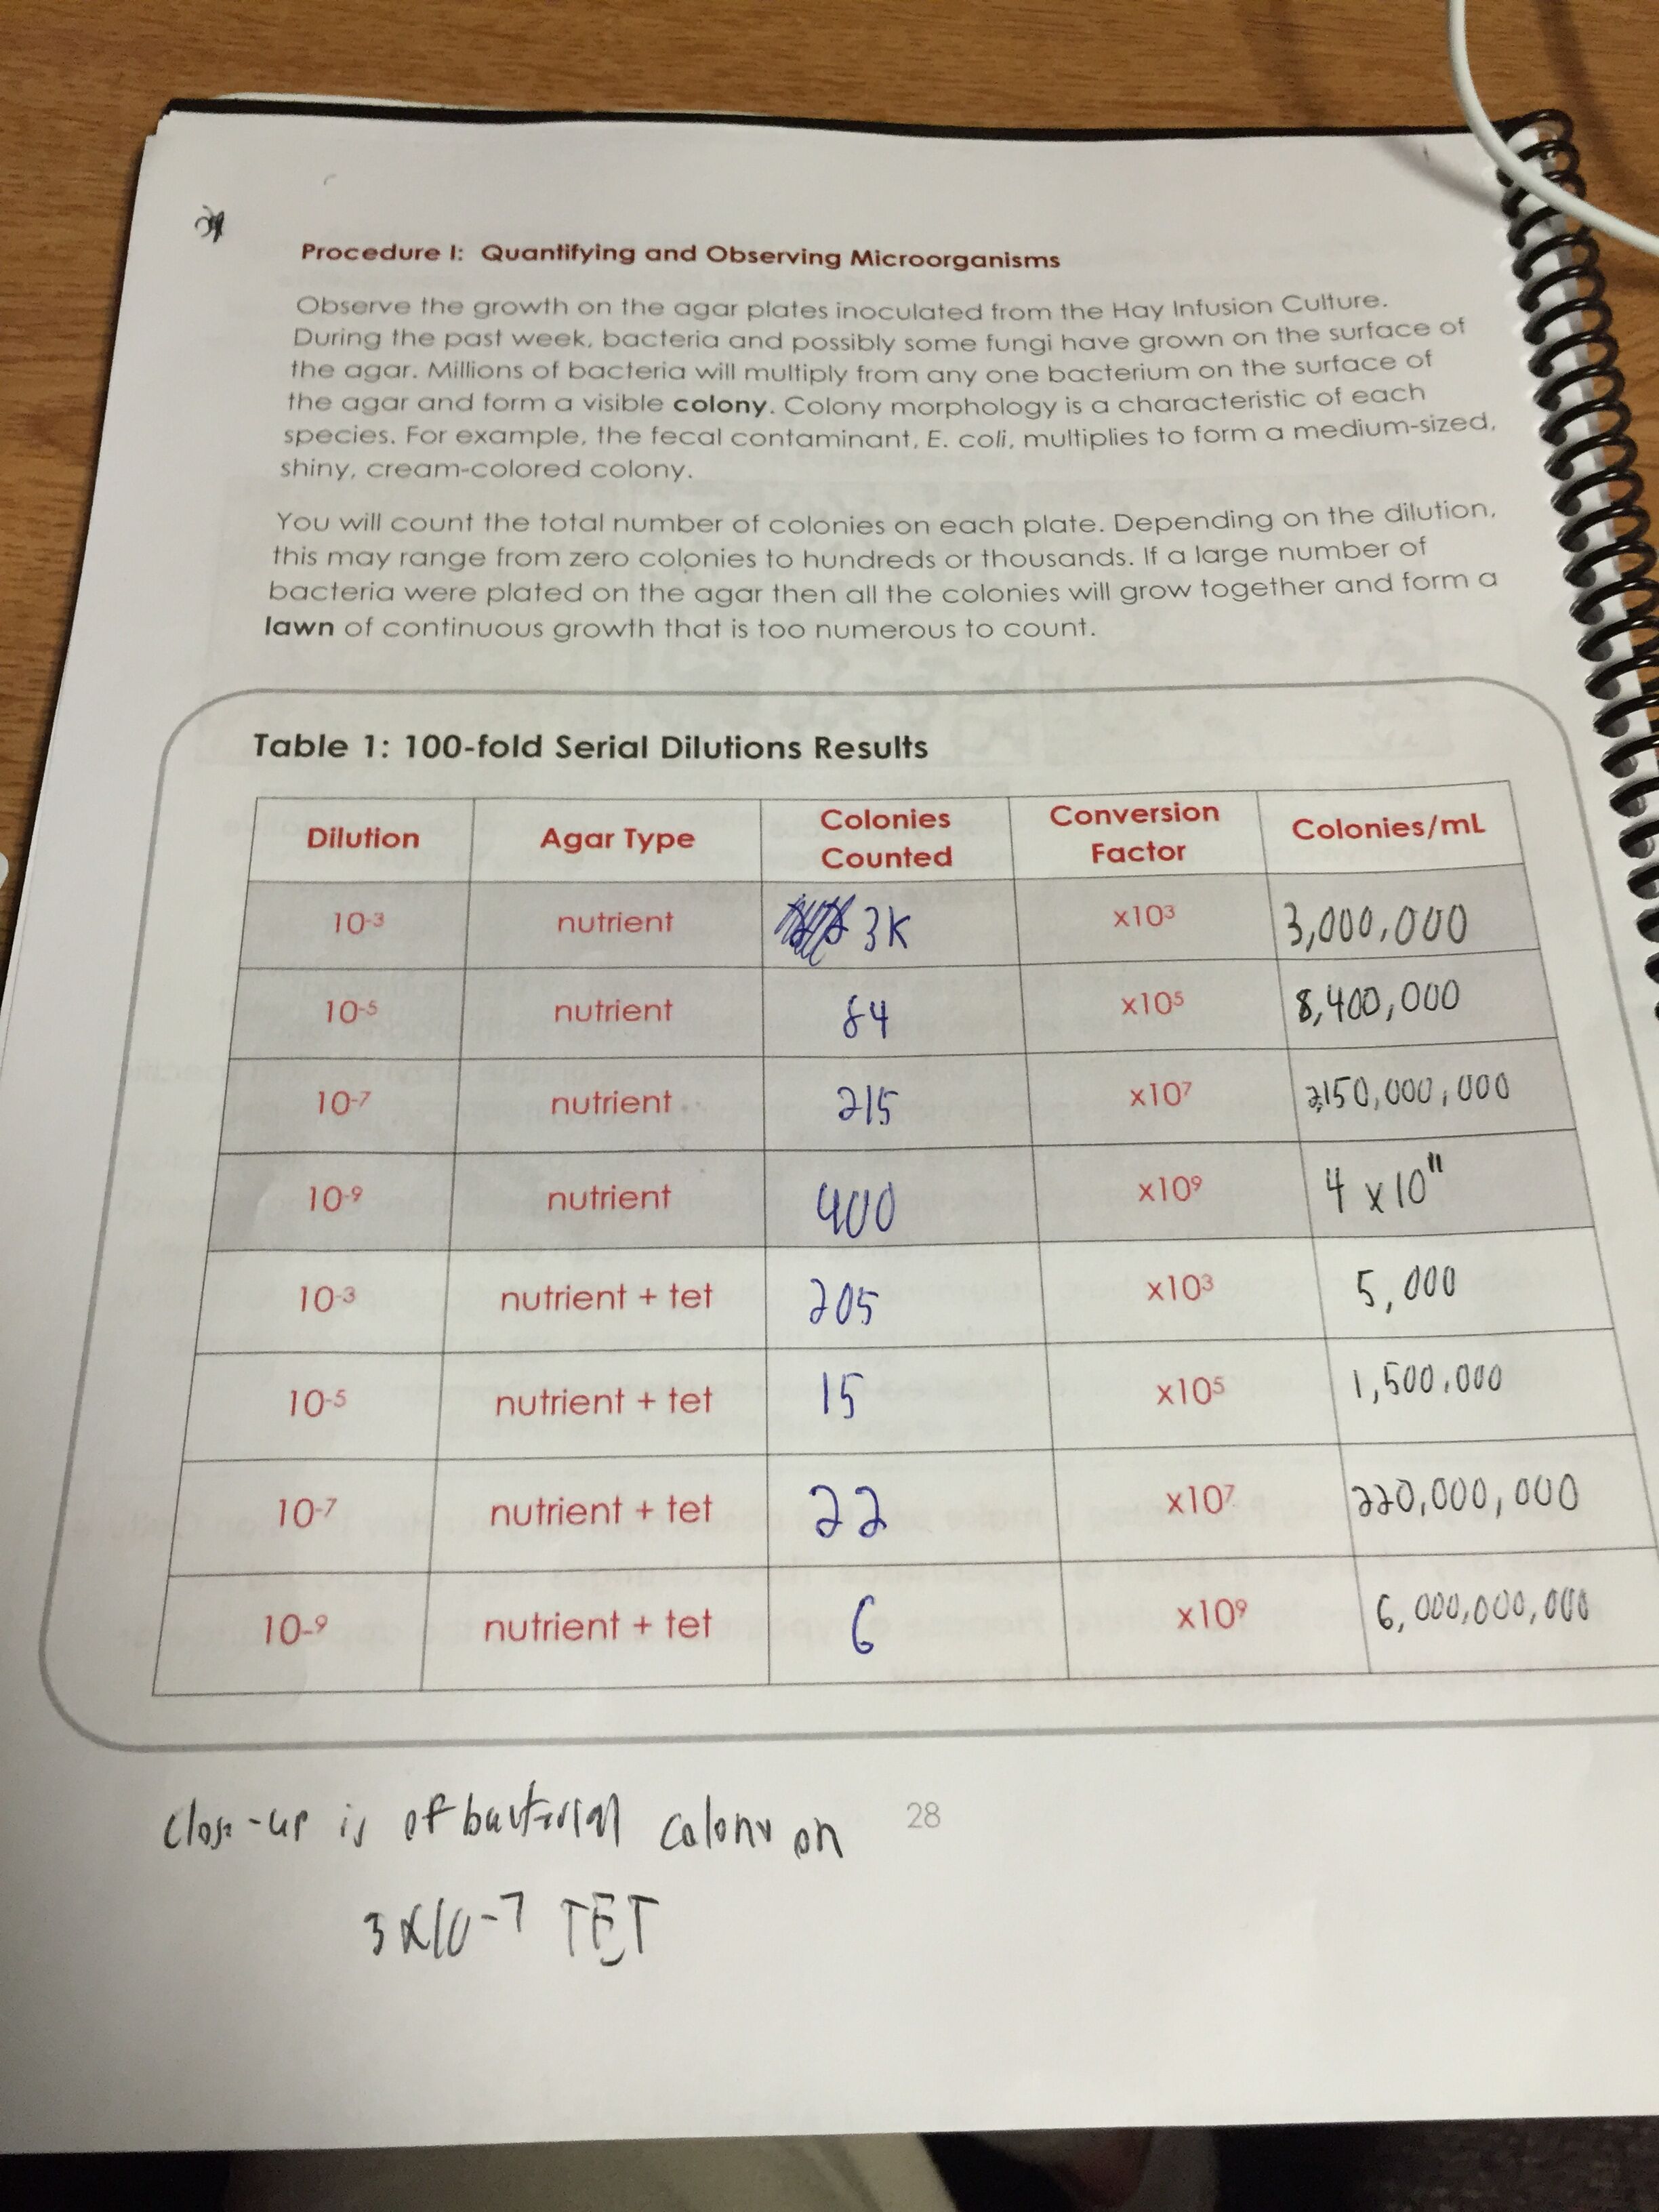 Procedure I: Quantifying and Observing Microorganisms
Observe the growth on the agar plates inoculated from the Hay Infusion Culture.
During the past week, bacteria and possibly some fungi have grown on the surface of
the agar. Millions of bacteria will multiply from any one bacterium on the surface of
the agar and form a visible colony. Colony morphology is a characteristic of each
species. For example, the fecal contaminant, E. coli, multiplies to form a medium-sized,
shiny, cream-colored colony.
You will count the total number of colonies on each plate. Depending on the dilution,
this may range from zero colonies to hundreds or thousands. If a large number of
bacteria were plated on the agar then all the colonies will grow together and form a
lawn of continuous growth that is too numerous to count.
Table 1: 100-fold Serial Dilutions Results
Dilution Agar Type Colonies Counted Conversion Factor Colonies/mL
10-3 nutrient 3K x10³ 3,000,000
10-5 nutrient 84 x10⁵ 8,400,000
10-7 nutrient 215 x10⁷ 2,150,000,000
10-9 nutrient 400 x10⁹ 4 x10¹¹
10-3 nutrient + tet 205 x10³ 5,000
10-5 nutrient + tet 15 x10⁵ 1,500,000
10-7 nutrient + tet 22 x10⁷ 220,000,000
10-9 nutrient + tet 6 x10⁹ 6,000,000,000
28
Close-up is of bacterial colony on
3x10-7 TET